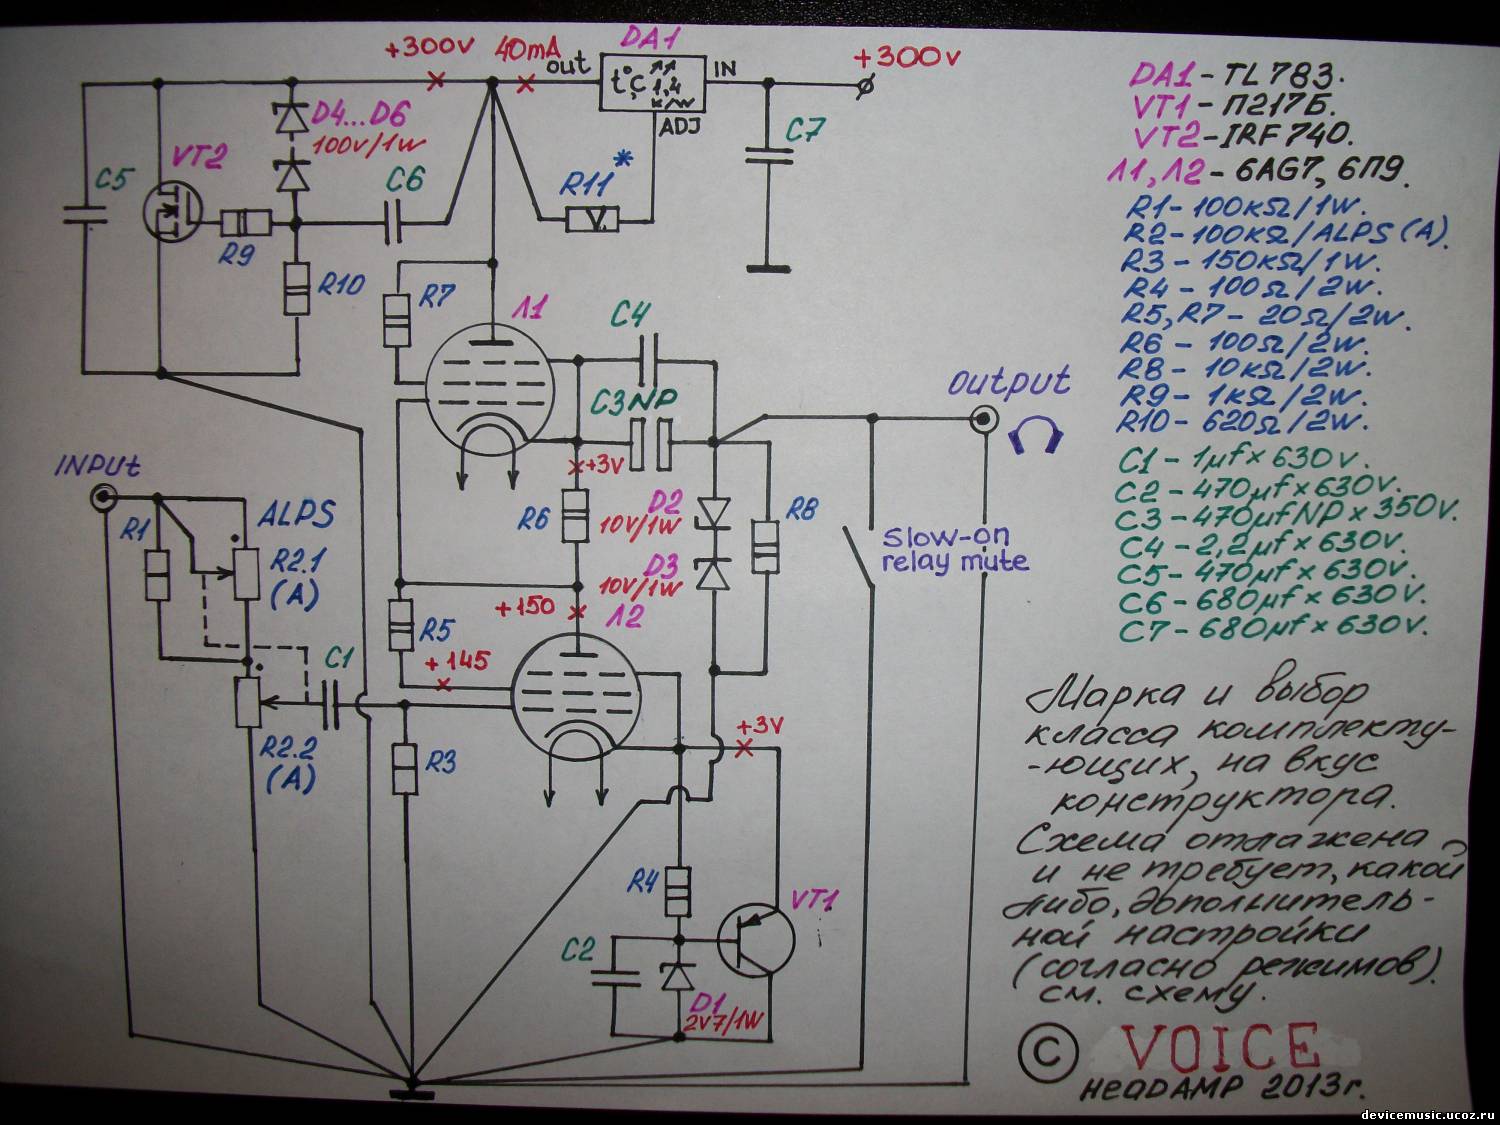 +300v
40mA
out
DA1
t°C 1,4
к/w
IN
ADJ
+300v
D4...D6
100v/1w
VT2
C5
C6
R9
R10
R11*
C7
R7
Л1
C4
C3 NP
+3v
R6
D2
10v/1w
D3
10v/1w
R8
OUTPUT
Slow-on
relay mute
INPUT
R1
ALPS
R2.1
(A)
+150
Л2
R5
+145
C1
R2.2
(A)
R3
+3v
R4
VT1
C2
D1
2v7/1w
DA1 - TL783.
VT1 - П217Б.
VT2 - IRF740.
Л1, Л2 - 6AG7, 6П9.
R1 - 100кΩ/1w.
R2 - 100кΩ/ALPS(A).
R3 - 150кΩ/1w.
R4 - 100Ω/2w.
R5, R7 - 20Ω/2w.
R6 - 100Ω/2w.
R8 - 10кΩ/2w.
R9 - 1кΩ/2w.
R10 - 620Ω/2w.
C1 - 1μf x 630v.
C2 - 470μf x 630v.
C3 - 470μf NP x 350v.
C4 - 2,2μf x 630v.
C5 - 470μf x 630v.
C6 - 680μf x 630v.
C7 - 680μf x 630v.
Марка и выбор
класса комплекту-
-ющих, на вкус
конструктора.
Схема отлажена
и не требует, какой
либо, дополнитель-
ной настройки
(согласно режимов).
см. схему.
© VOICE
HeadAMP 2013г.
devicemusic.ucoz.ru